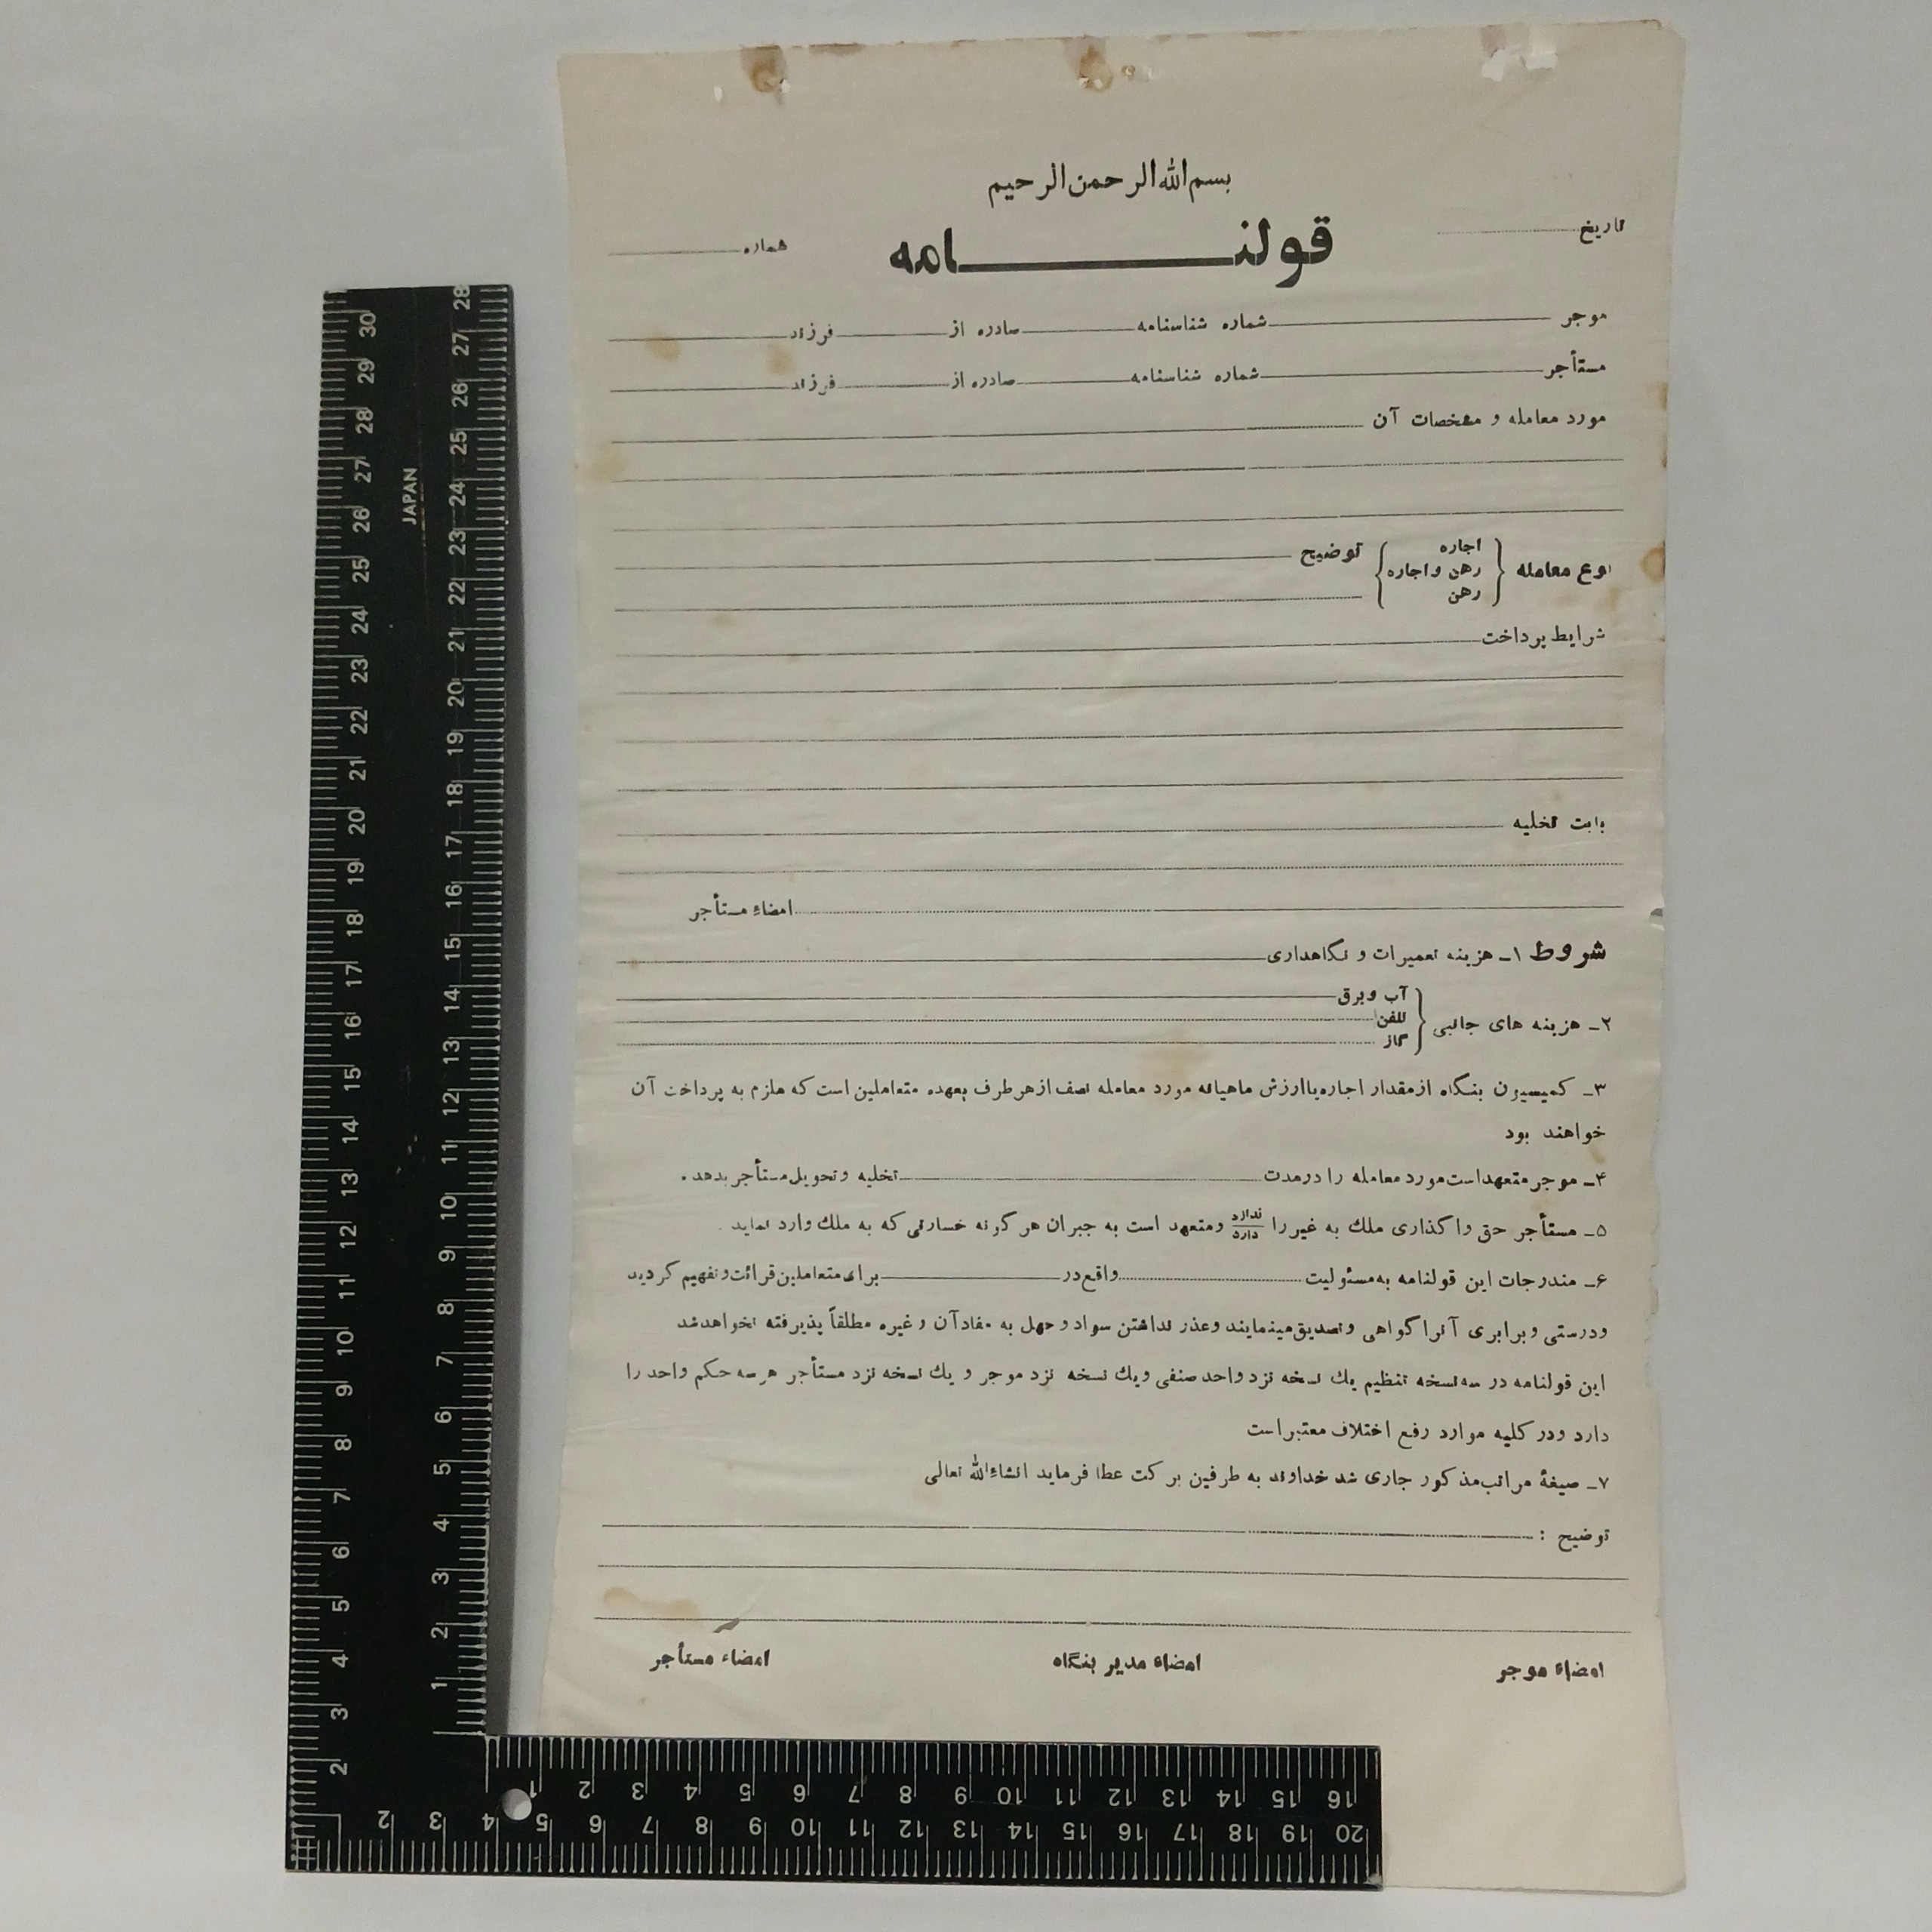 بسم الله الرحمن الرحیم
تاریخ
قولنامه
شماره
موجر شماره شناسنامه صادره از فرزند
مستأجر شماره شناسنامه صادره از فرزند
مورد معامله و مشخصات آن
نوع معامله { اجاره
رهن و اجاره
رهن } توضیح
شرایط پرداخت
بابت تخلیه
امضاء مستأجر
شروط ۱ـ هزینه تعمیرات و نگاهداری
۲ـ هزینه های جانبی { آب و برق
تلفن
گاز
۳ـ کمیسیون بنگاه از مقدار اجاره یا ارزش ماهیانه مورد معامله نصف از هر طرف بعهده متعاملین است که ملزم به پرداخت آن
خواهند بود
۴ـ موجر متعهد است مورد معامله را در مدت تخلیه و تحویل مستأجر بدهد .
۵ـ مستأجر حق واگذاری ملك به غیر را ندارد / دارد و متعهد است به جبران هر گونه خسارتی که به ملك وارد نماید .
۶ـ مندرجات این قولنامه به مسئولیت واقع در برای متعاملین قرائت و تفهیم گردید
و درستی و برابری آنرا گواهی و تصدیق مینمایند و عذر نداشتن سواد و جهل به مفاد آن و غیره مطلقاً پذیرفته نخواهد شد
این قولنامه در سه نسخه تنظیم یك نسخه نزد واحد صنفی و یك نسخه نزد موجر و یك نسخه نزد مستأجر هر سه حکم واحد را
دارد و در کلیه موارد رفع اختلاف معتبر است
۷ـ صیغهٔ مراتب مذکور جاری شد خداوند به طرفین برکت عطا فرماید انشاءالله تعالی
توضیح :
امضاء موجر
امضاء مدیر بنگاه
امضاء مستأجر
JAPAN
30 29 28 27 26 25 24 23 22 21 20 19 18 17 16 15 14 13 12 11 10 9 8 7 6 5 4 3 2
28 27 26 25 24 23 22 21 20 19 18 17 16 15 14 13 12 11 10 9 8 7 6 5 4 3 2 1
1 2 3 4 5 6 7 8 9 10 11 12 13 14 15 16
2 3 4 5 6 7 8 9 10 11 12 13 14 15 16 17 18 19 20